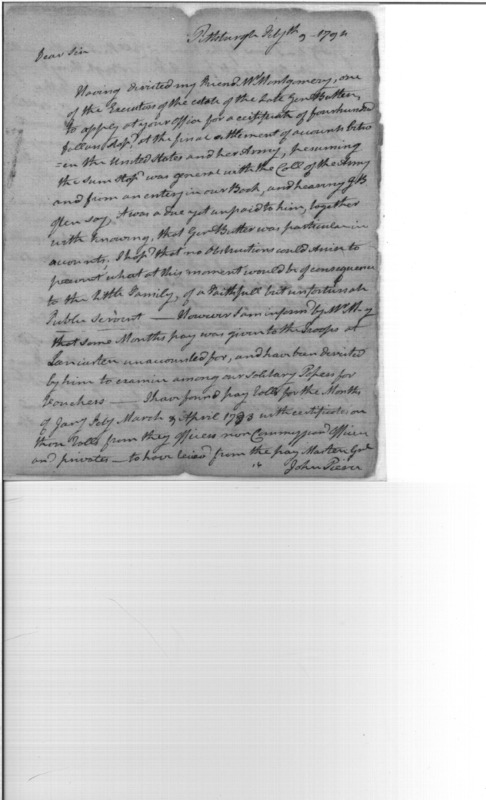 Pittsburgh Feby 3 1794
Dear Sir
Having directed my Friend Mr. Montgomery, one
of the Executors of the estate of the late Genl Butler,
to apply at your Office for a certificate of four hundred
dollars, stopd at the final settlement of accounts betwe
=en the United States and her Army, presuming
the sum stopd was general with the Coll of the Army
and from an entery in our Book, and hearing G B
often say, it was a due yet unpaid to him, together
with knowing, that Genl Butler was particular in
accounts; I hopd that no obstructions could arise to
prevent what at this moment would be of consequence
to the little Family, of a Faithfull but unfortunate
Public Servent — However I am informd by Mr M—y
that some Months pay was given to the Troops at
Lancaster unaccounted for, and have been directed
by him to examin among our Papers for
Vouchers — I have found pay Rolls for the Months
of Jany Feby March & April 1783 with certificates on
them Rolls from the Officers non Commissiond Officers
and privates — to have from the pay Master Genl
John Pierce